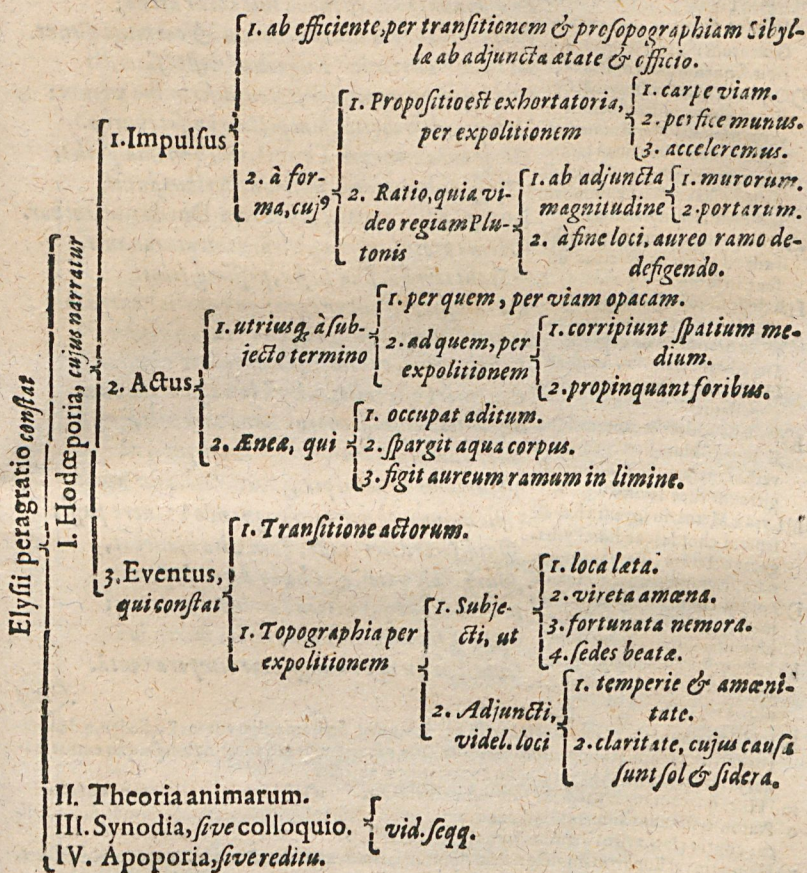 Elysii peragratio constat
I. Hodœporia, cujus narratur
1. Impulsus
1. ab efficiente, per transitionem & prosopographiam Sibyl-
læ ab adjuncta ætate & officio.
2. à for-
ma, cujꝰ
1. Propositio est exhortatoria,
per expolitionem
1. carpe viam.
2. perfice munus.
3. acceleremus.
2. Ratio, quia vi-
deo regiam Plu-
tonis
1. ab adjuncta
magnitudine
1. murorum.
2. portarum.
2. à fine loci, aureo ramo de-
defigendo.
2. Actus
1. utriusq; à sub-
jecto termino
1. per quem, per viam opacam.
2. ad quem, per
expolitionem
1. corripiunt spatium me-
dium.
2. propinquant foribus.
2. Æneæ, qui
1. occupat aditum.
2. spargit aqua corpus.
3. figit aureum ramum in limine.
3. Eventus,
qui constat
1. Transitione actorum.
1. Topographia per
expolitionem
1. Subje-
cti, ut
1. loca læta.
2. vireta amœna.
3. fortunata nemora.
4. sedes beatæ.
2. Adjuncti,
videl. loci
1. temperie & amœni-
tate.
2. claritate, cujus causa
sunt sol & sidera.
II. Theoria animarum.
III. Synodia, sive colloquio.
IV. Apoporia, sive reditu.
vid. seqq.